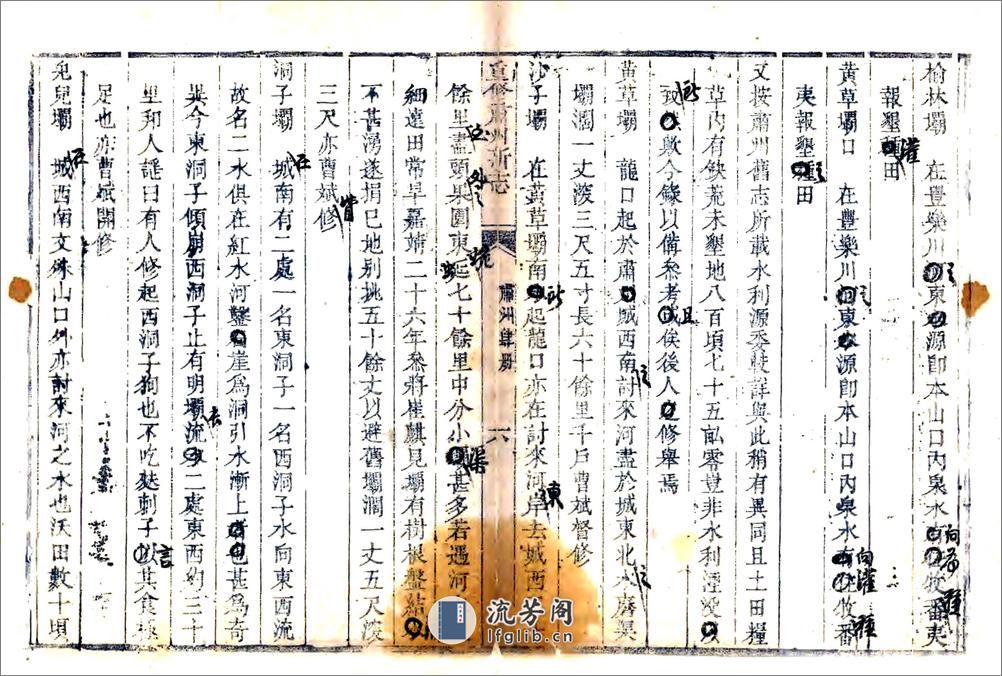 榆林壩　在豐樂川東源即本山口內泉水牧番夷
報墾田
黃草壩口　在豐樂川東源即本山口內泉水有牧番
夷報墾田
又按肅州舊志所載水利源委較詳與此稍有異同且土田糧
草內有缺荒未墾地八百頃七十五畝零豈非水利湮沒
致歟今錄以備參考俟後人修舉焉
黃草壩　龍口起於肅城西南討來河盡於城東北
壩濶一丈深三尺五寸長六十餘里千戶曹斌督修
沙子壩　在黃草壩南起龍口亦在討來河岸去城西
重修肅州新志
肅州肆冊
六
餘里盡頭果園東起七十餘里中分小甚多若遇河
細遠田常旱嘉靖二十六年參將崔麒見壩有樹根盤結
不甚湧遂捐己地別挑五十餘丈以避舊壩濶一丈五尺深
三尺亦曹斌修
洞子壩　城南有二處一名東洞子一名西洞子水向東西流
故名二水俱在紅水河鑿崖為洞引水漸上者也甚為奇
異今東洞子傾崩西洞子止有明壩流二處東西約三十
里和人謡曰有人修起西洞子狗也不吃麩剌子其食
足也亦曹斌開修
兒壩　城西南文殊山口外亦討來河之水也沃田數十頃
流芳阁
lfglib.cn